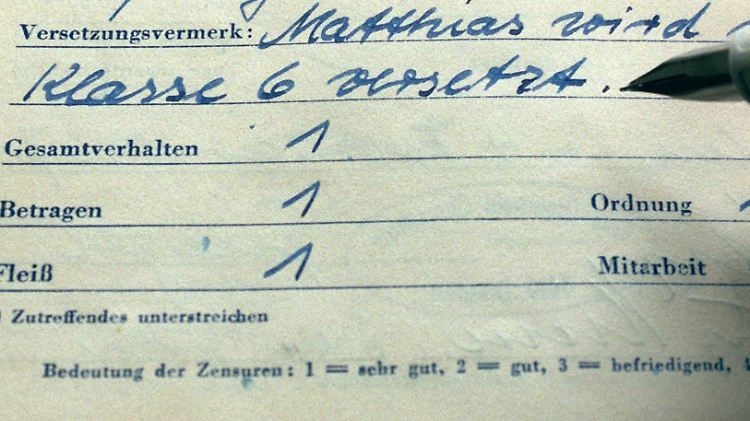 Versetzungsvermerk: Matthias wird
Klasse 6 versetzt.
Gesamtverhalten 1
Betragen 1 Ordnung 1
Fleiß 1 Mitarbeit
Zutreffendes unterstreichen
Bedeutung der Zensuren: 1 = sehr gut, 2 = gut, 3 = befriedigend, 4